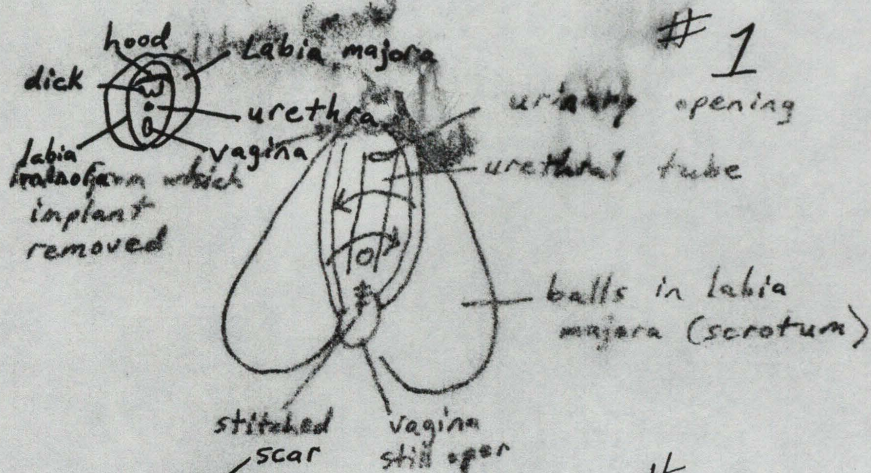 # 1
hood
Labia majora
dick
urethra
vagina
labia
which
implant
removed
urinary opening
urethral tube
balls in labia
majora (scrotum)
stitched
scar
vagina
still open